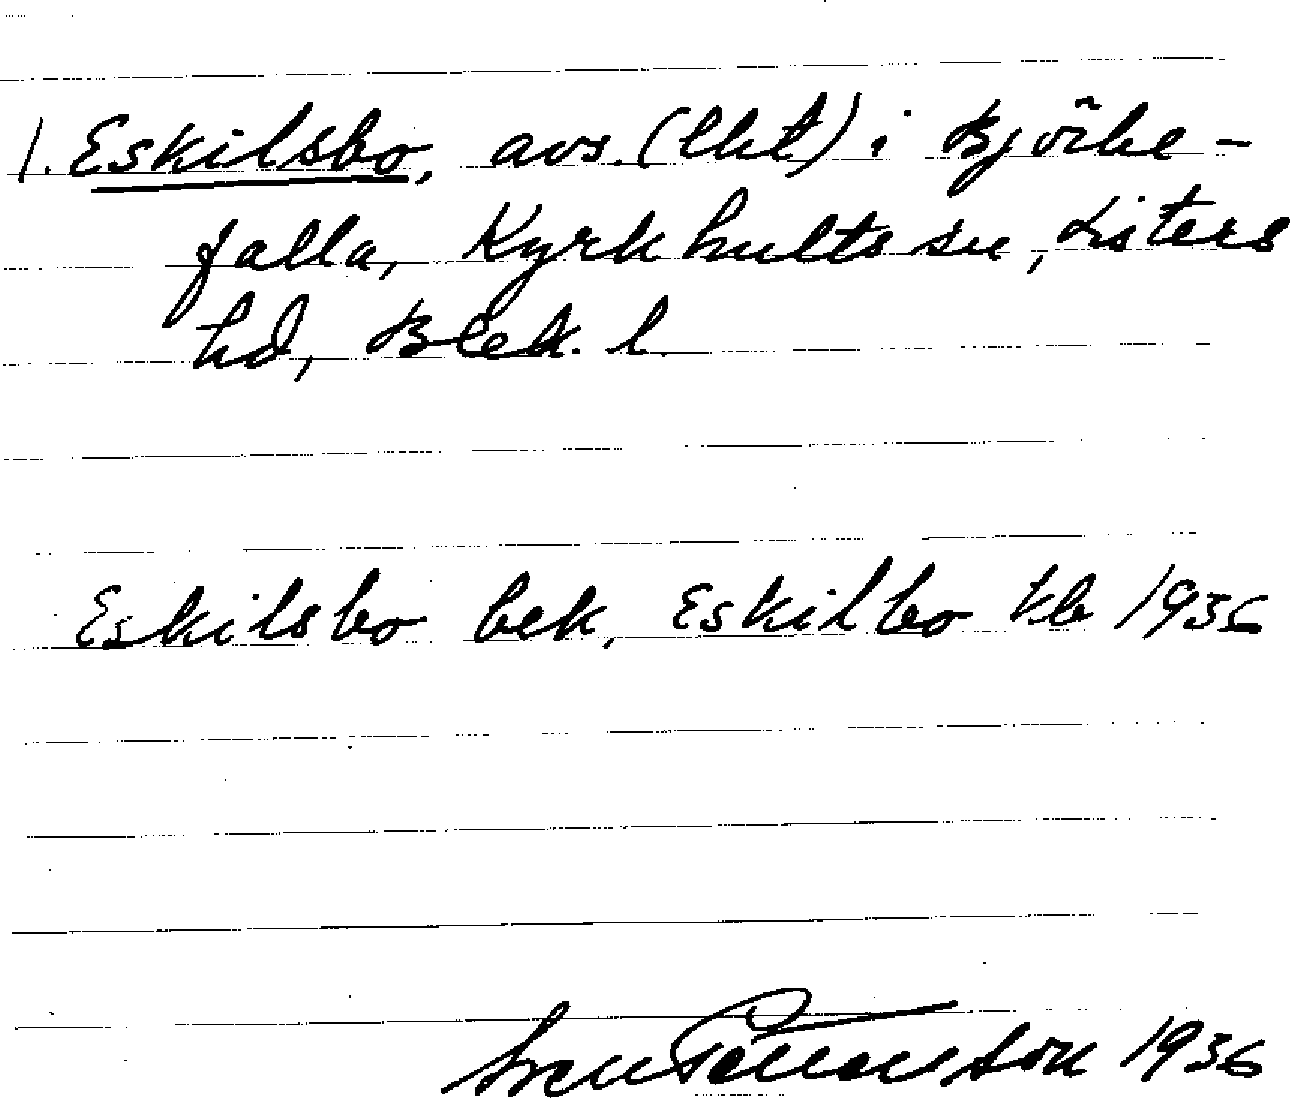 1. Eskilsbo, avs. (lht) i Björke-
falla, Kyrkhults sn, Listers
hd, Blek. l.
Eskilsbo bek, Eskilbo tlb 1936
Sven Pettersson 1936